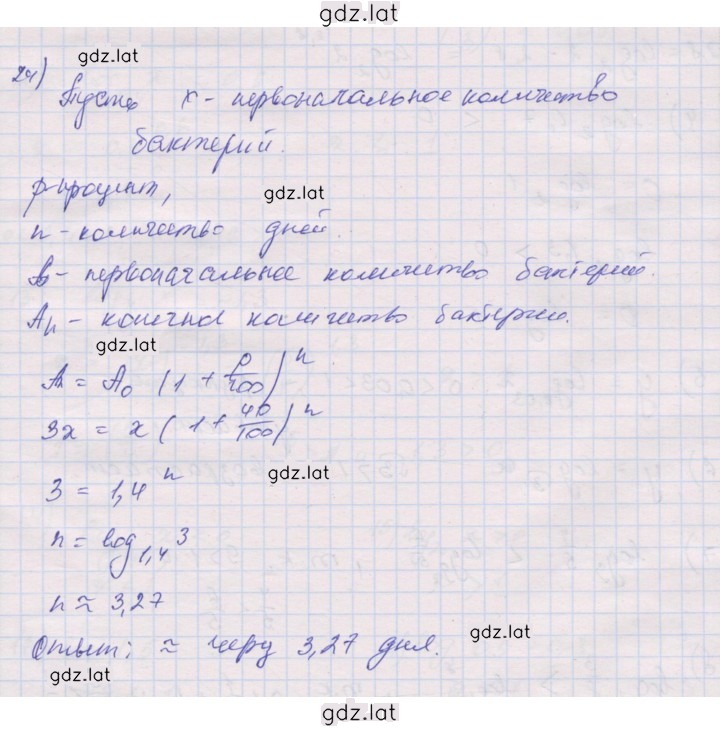 gdz.lat
gdz.lat
24)
Пусть x - первоначальное количество
бактерий.
p-процент,
gdz.lat
n - количество дней.
- первоначальное количество бактерий.
Aₙ - конечное количество бактерий.
gdz.lat
Aₙ = A₀ (1 + p/100)ⁿ
3x = x (1 + 40/100)ⁿ
3 = 1,4ⁿ
gdz.lat
n = log₁,₄ 3
n ≈ 3,27
Ответ: ≈ через 3,27 дня.
gdz.lat
gdz.lat
gdz.lat